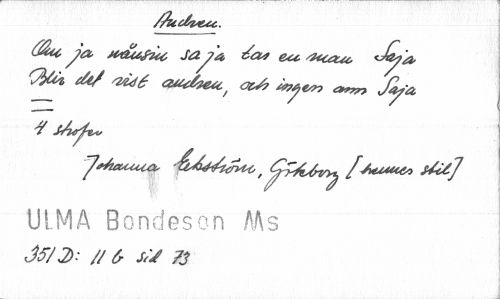 Andren.
Om ja nånsin sa ja tas en man Saja
Blir det vist andren, och ingen ann Saja
4 strofer
Johanna Ekström, Göteborg [hennes stil]
ULMA Bondeson Ms
351 D: 11 b sid 73